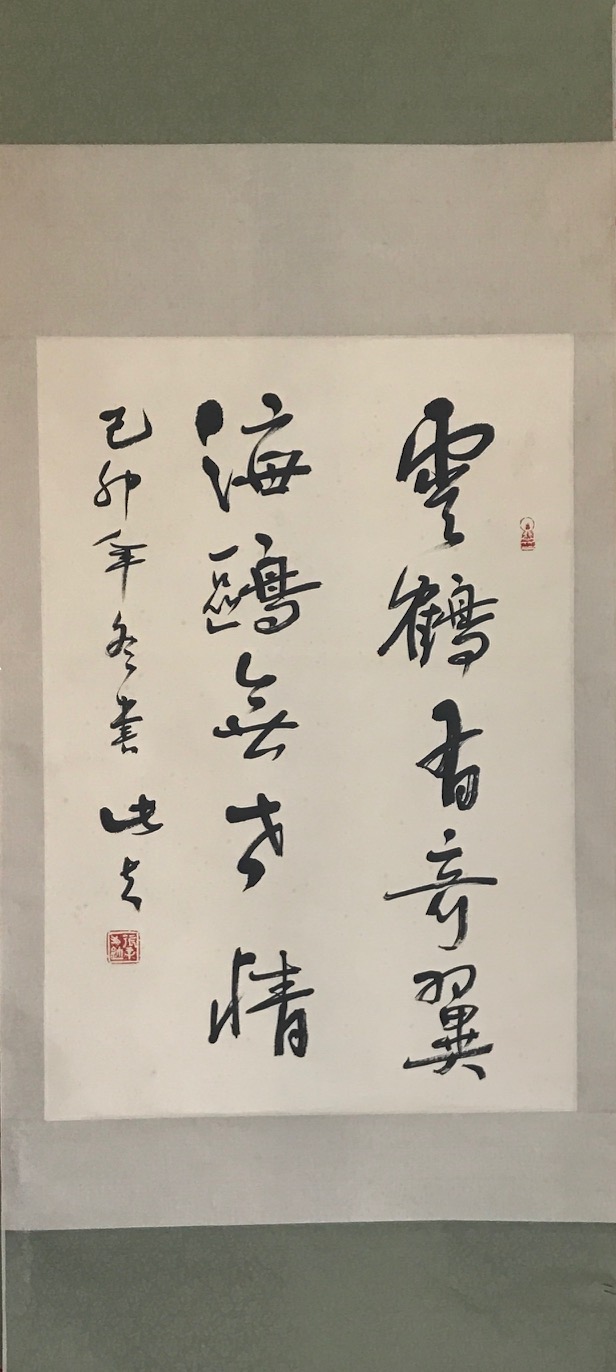 雲鶴有奇翼
海鷗無世情
己卯年冬書